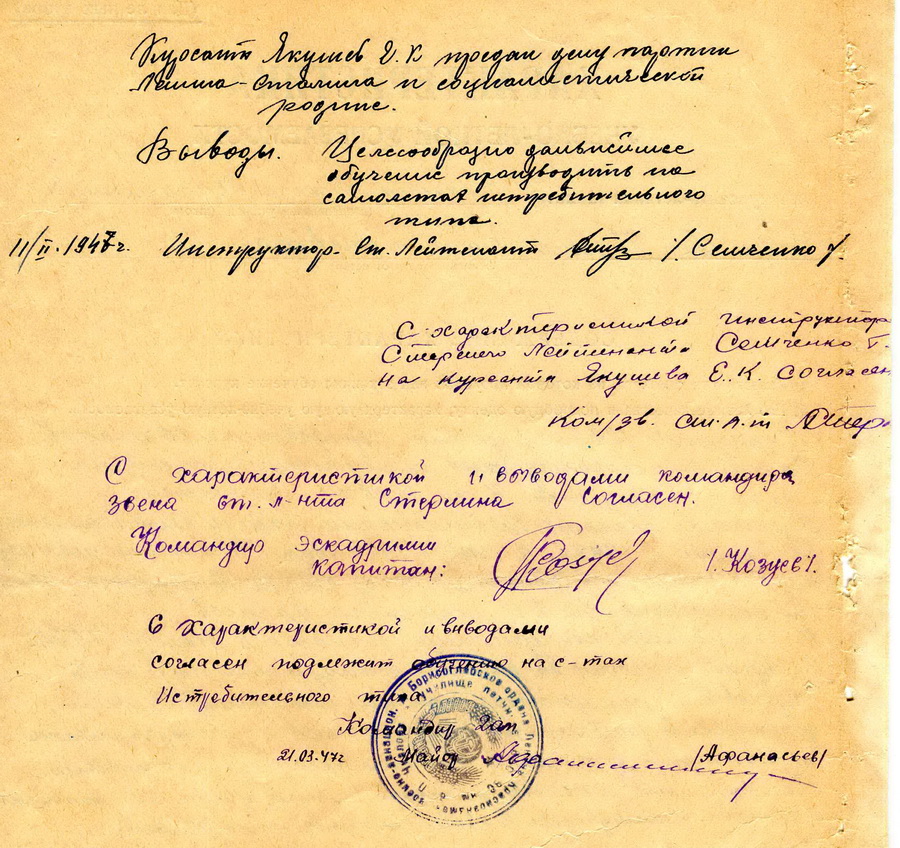 Курсант Якушев Е. К предан делу партии
Ленина-Сталина и социалистической
родине.
Выводы. Целесообразно дальнейшее
обучение производить на
самолетах истребительного
типа.
11/II.1947г. Инструктор Ст. Лейтенант /Семченко/.
С характеристикой инструктора
Старшего Лейтенанта Семченко Г.
на курсанта Якушева Е. К. согласен
Ком/зв. ст. л-т
С характеристикой и выводами командира
звена ст. л-нта Стерлина согласен.
Командир эскадрилии
капитан: /.Козуев/.
С характеристикой и выводами
согласен подлежит обучению на с-тах
Истребительного типа
Командир 2ап
21.03.47г Майор /Афанасьев/
Борисоглебское ордена
училище летчиков